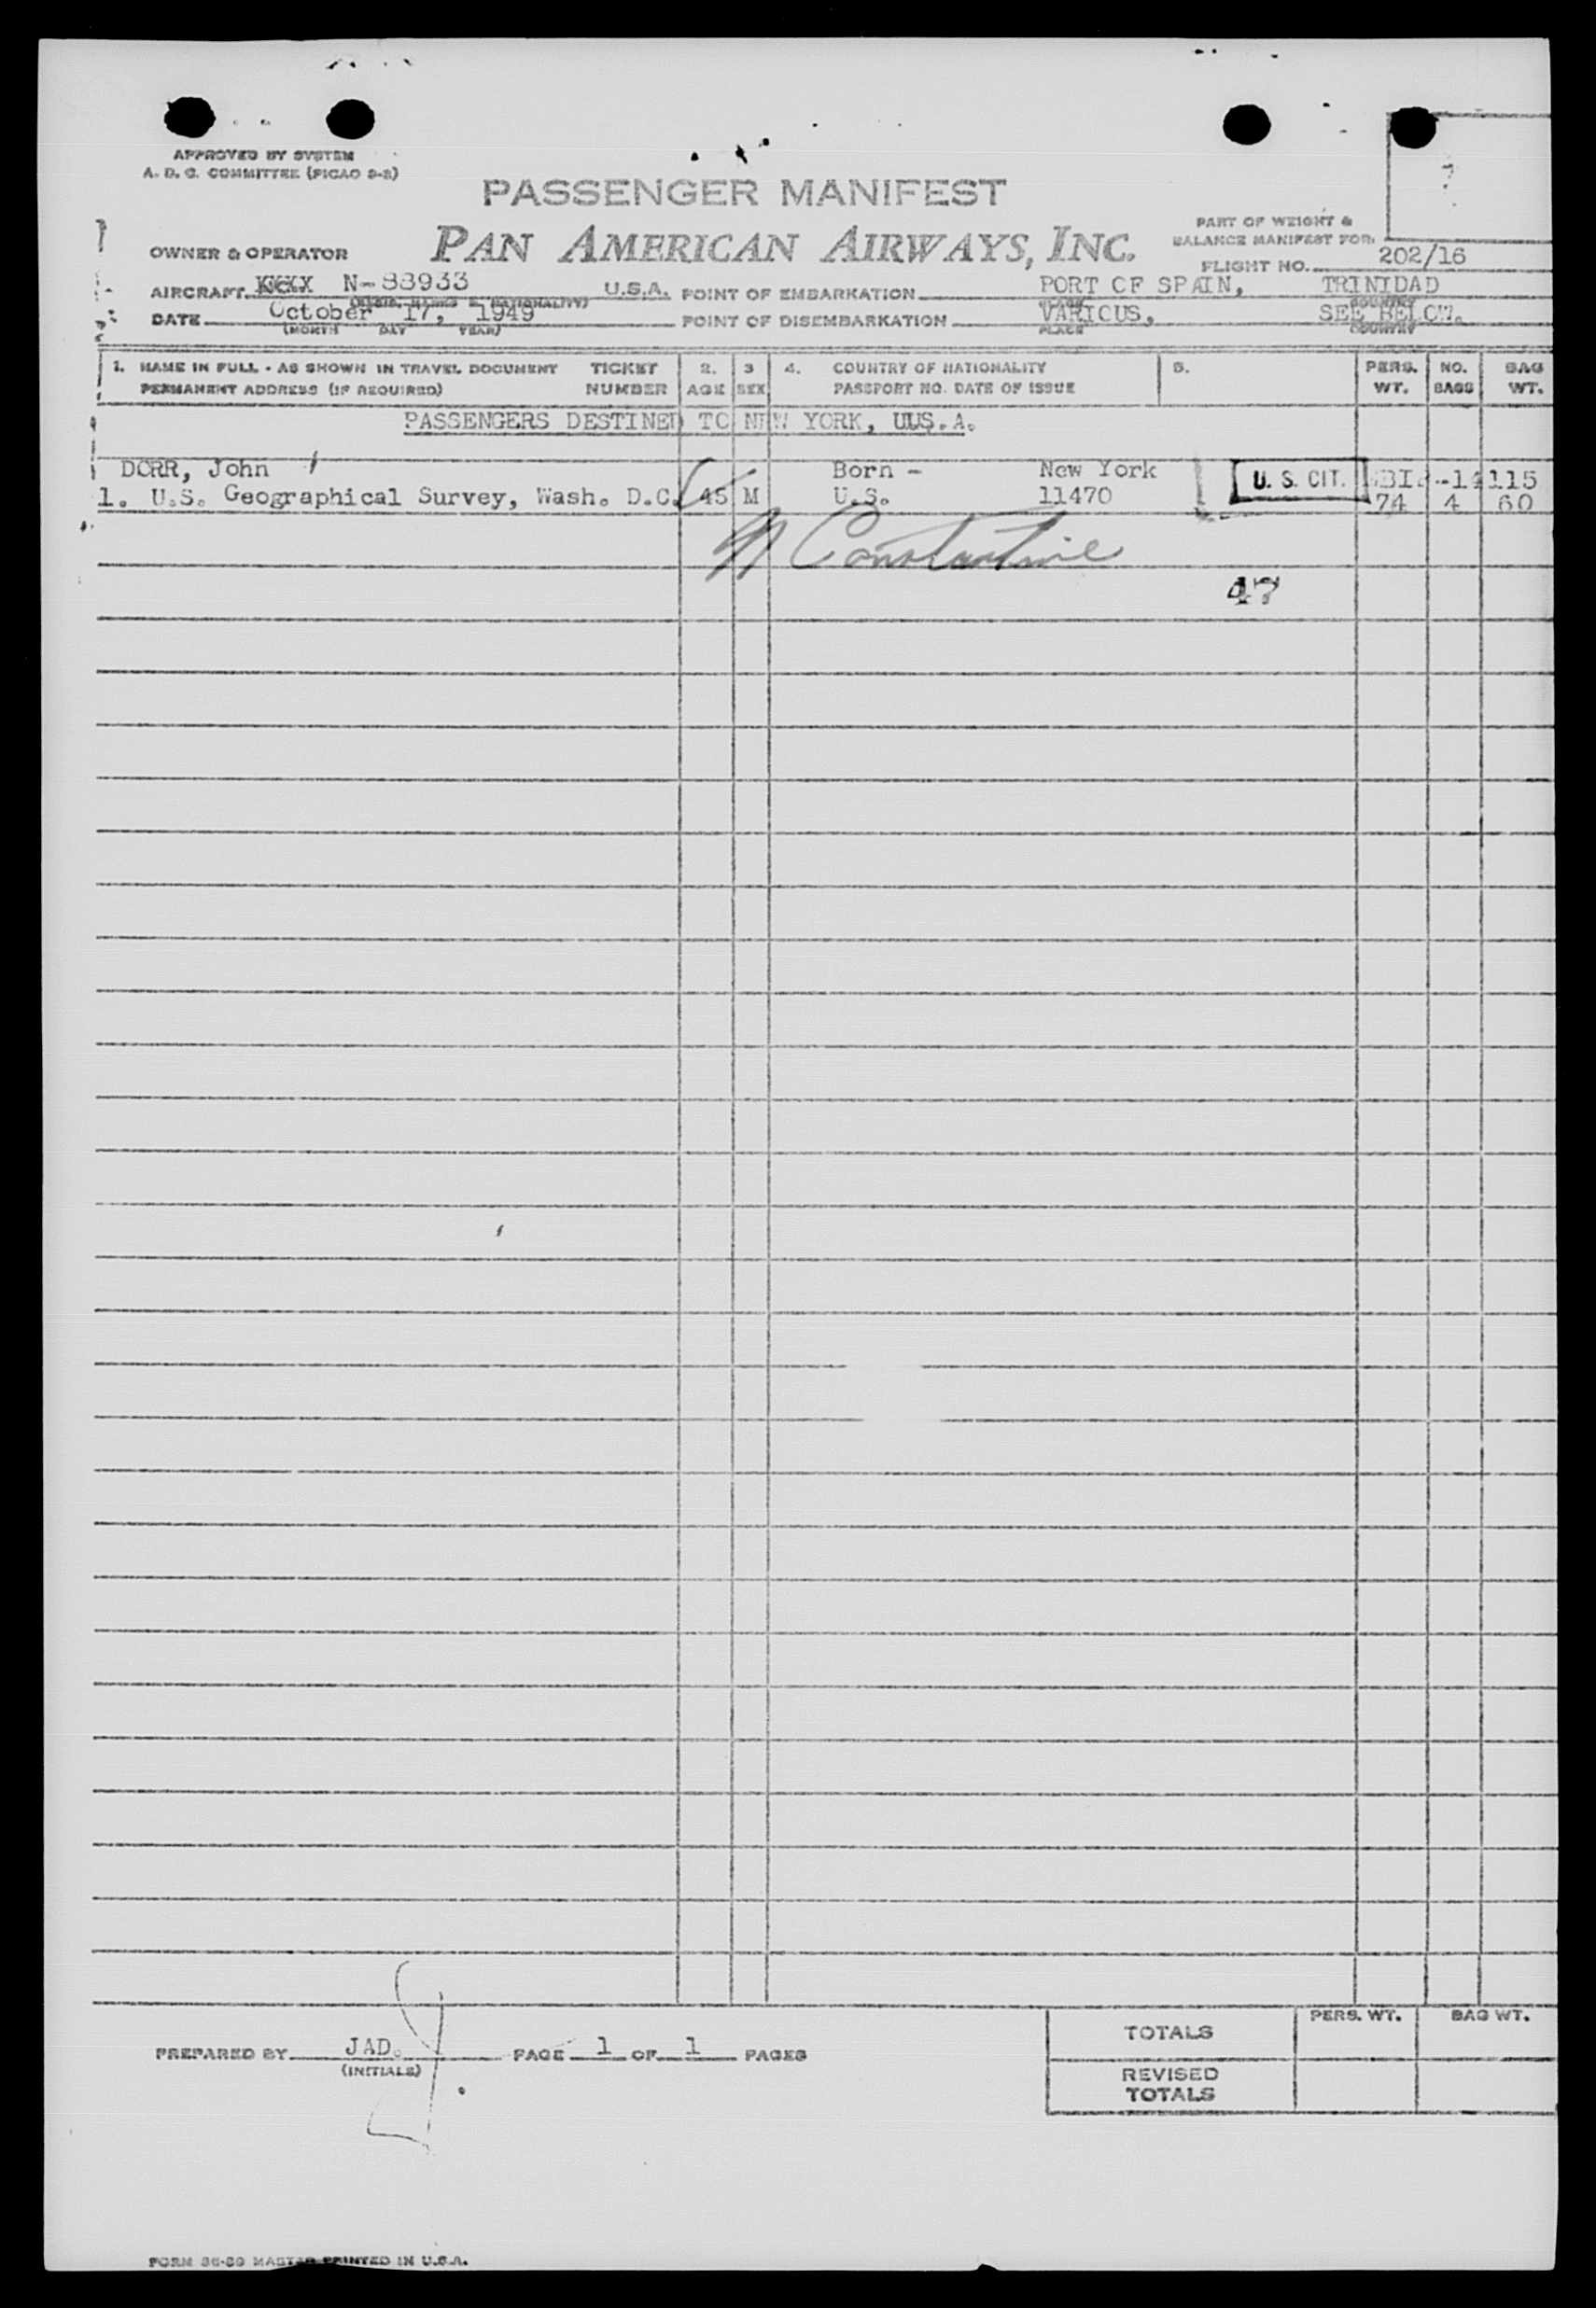 APPROVED BY SYSTEM
A. D. C. COMMITTEE (PICAO 2-2)
PASSENGER MANIFEST
PART OF WEIGHT &
BALANCE MANIFEST FOR:
OWNER & OPERATOR PAN AMERICAN AIRWAYS, INC.
FLIGHT NO. 202/16
AIRCRAFT N-88933 U.S.A. POINT OF EMBARKATION PORT OF SPAIN, TRINIDAD
DATE October 17, 1949 POINT OF DISEMBARKATION VARIOUS, SEE BELOW.
(MONTH DAY YEAR) PLACE COUNTRY
1. NAME IN FULL - AS SHOWN IN TRAVEL DOCUMENT TICKET 2. 3 4. COUNTRY OF NATIONALITY 5. PERS. NO. BAG
PERMANENT ADDRESS (IF REQUIRED) NUMBER AGE SEX PASSPORT NO. DATE OF ISSUE WT. BAGS WT.
PASSENGERS DESTINED TO NEW YORK, UUS.A.
DORR, John Born - New York
1. U.S. Geographical Survey, Wash. D.C. 45 M U.S. 11470 U. S. CIT. 74 4 60
Constantine
47
PREPARED BY JAD. PAGE 1 OF 1 PAGES
(INITIALS)
TOTALS PERS. WT. BAG WT.
REVISED
TOTALS
PRINTED IN U.S.A.